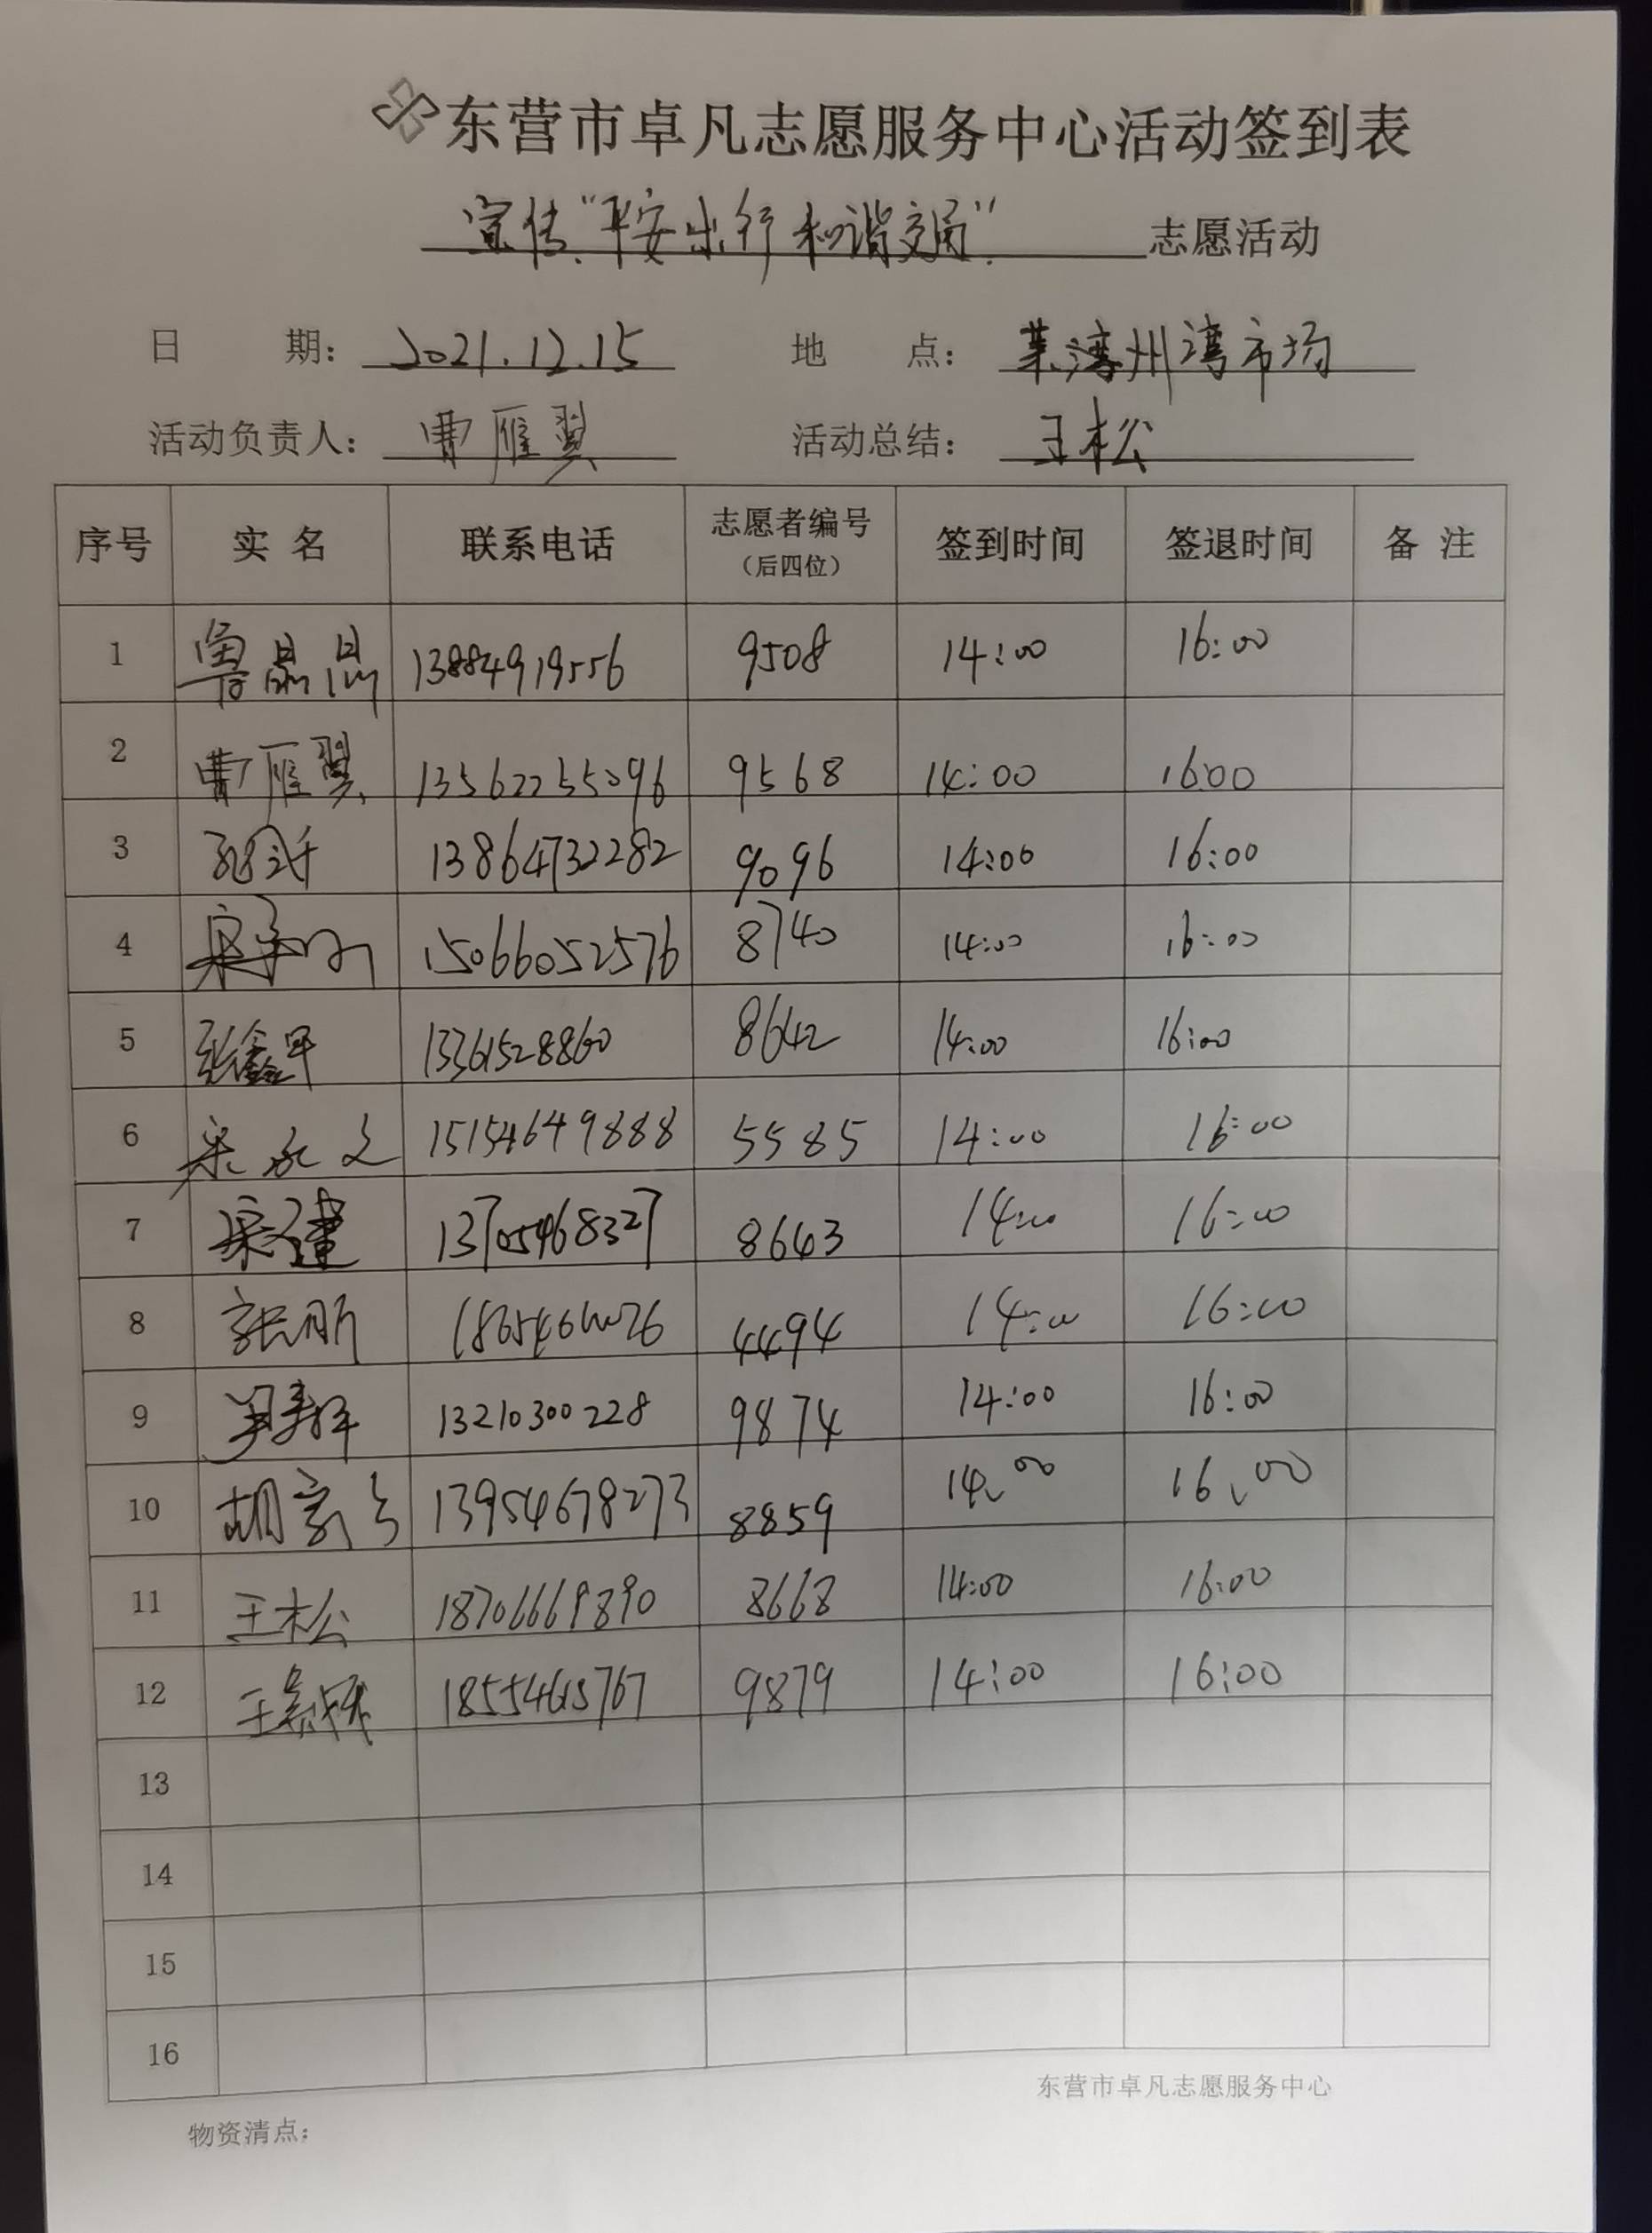 东营市卓凡志愿服务中心活动签到表
宣传"平安出行 和谐交通" 志愿活动
日 期: 2021.12.15 地 点: 莱州湾市场
活动负责人: 曹雁翼 活动总结: 王松
序号 实 名 联系电话 志愿者编号 (后四位) 签到时间 签退时间 备 注
1 鲁晶晶 13884919556 9508 14:00 16:00
2 曹雁翼 13562255096 9568 14:00 16:00
3 13864732282 9096 14:00 16:00
4 15066052576 8740 14:00 16:00
5 张鑫 13361528860 8642 14:00 16:00
6 宋永文 15154649888 5585 14:00 16:00
7 宋建 13705468327 8643 14:00 16:00
8 4494 14:00 16:00
9 13210300228 9874 14:00 16:00
10 胡 13954678273 8859 14:00 16:00
11 王松 18706669890 8668 14:00 16:00
12 王 9879 14:00 16:00
13
14
15
16
东营市卓凡志愿服务中心
物资清点: